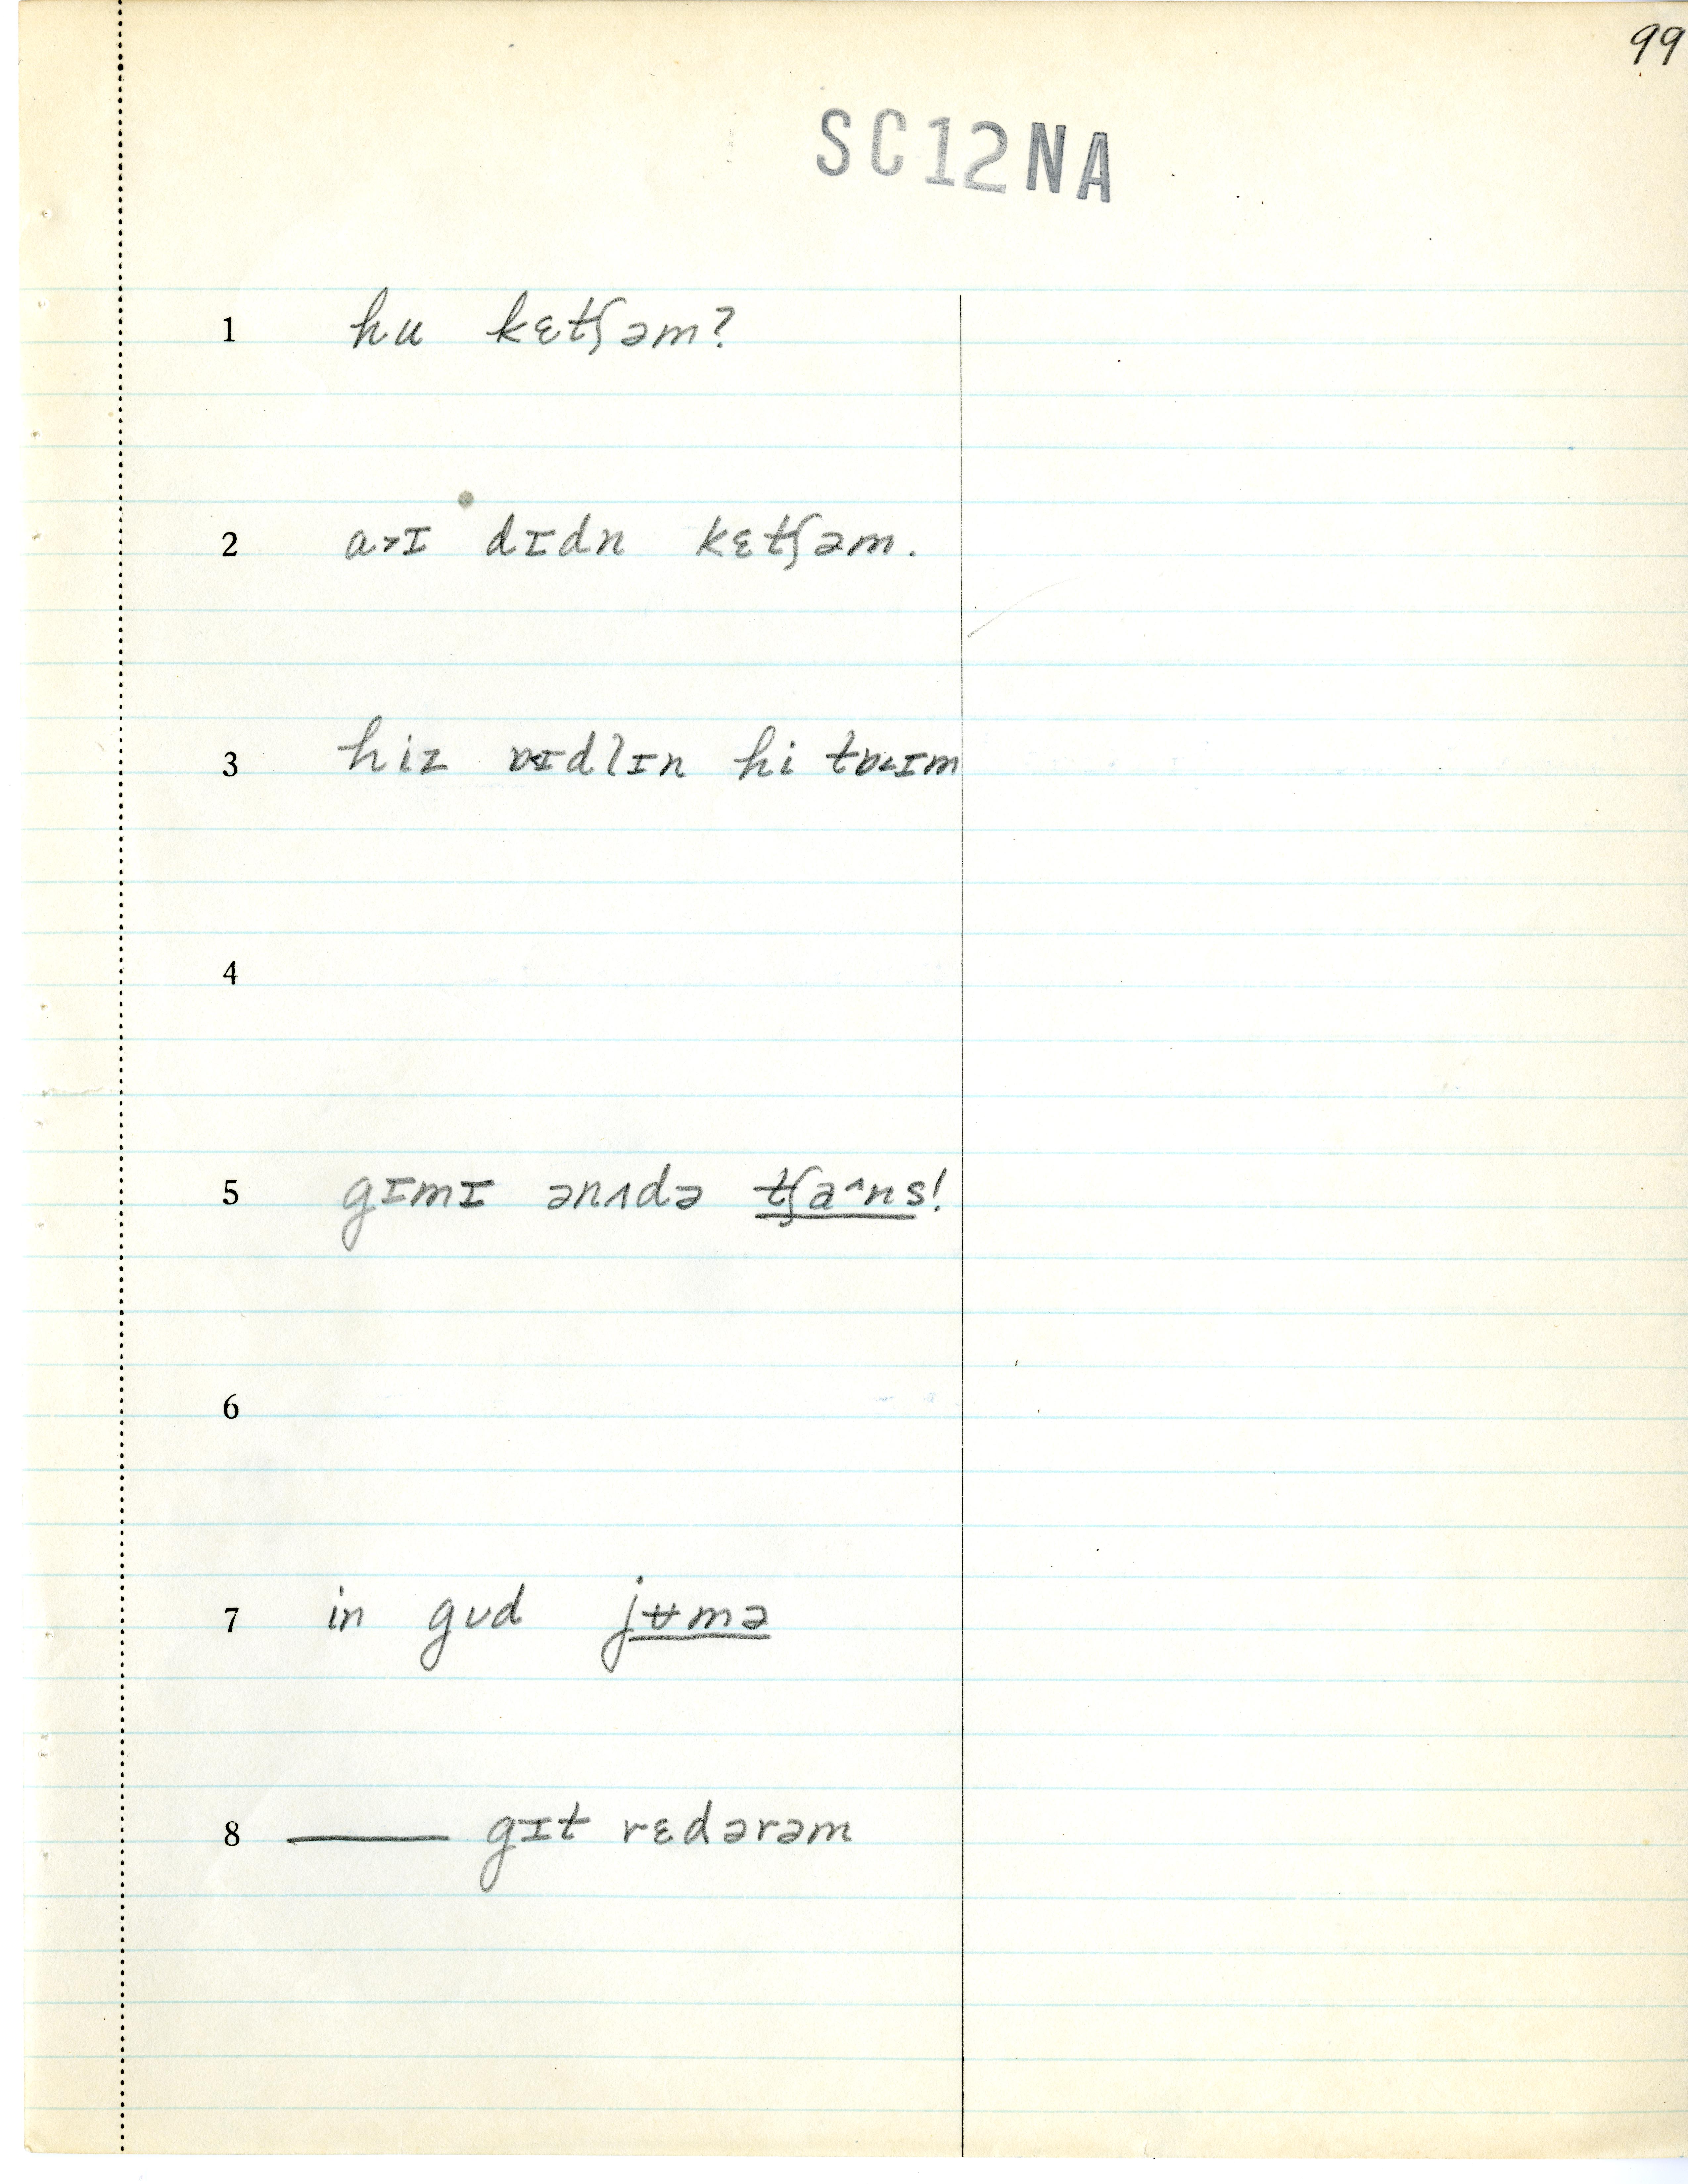 99
SC12NA
1 hu kɛtʃəm?
2 a˃ɪ dɪdn kɛtʃəm.
3 hiz ɒɪdlɪn hi tɒ˂ɪm
4
5 gɪmɪ ənʌdə tʃa^ns!
6
7 in gʊd jʉmə
8 —— gɪt rɛdərəm